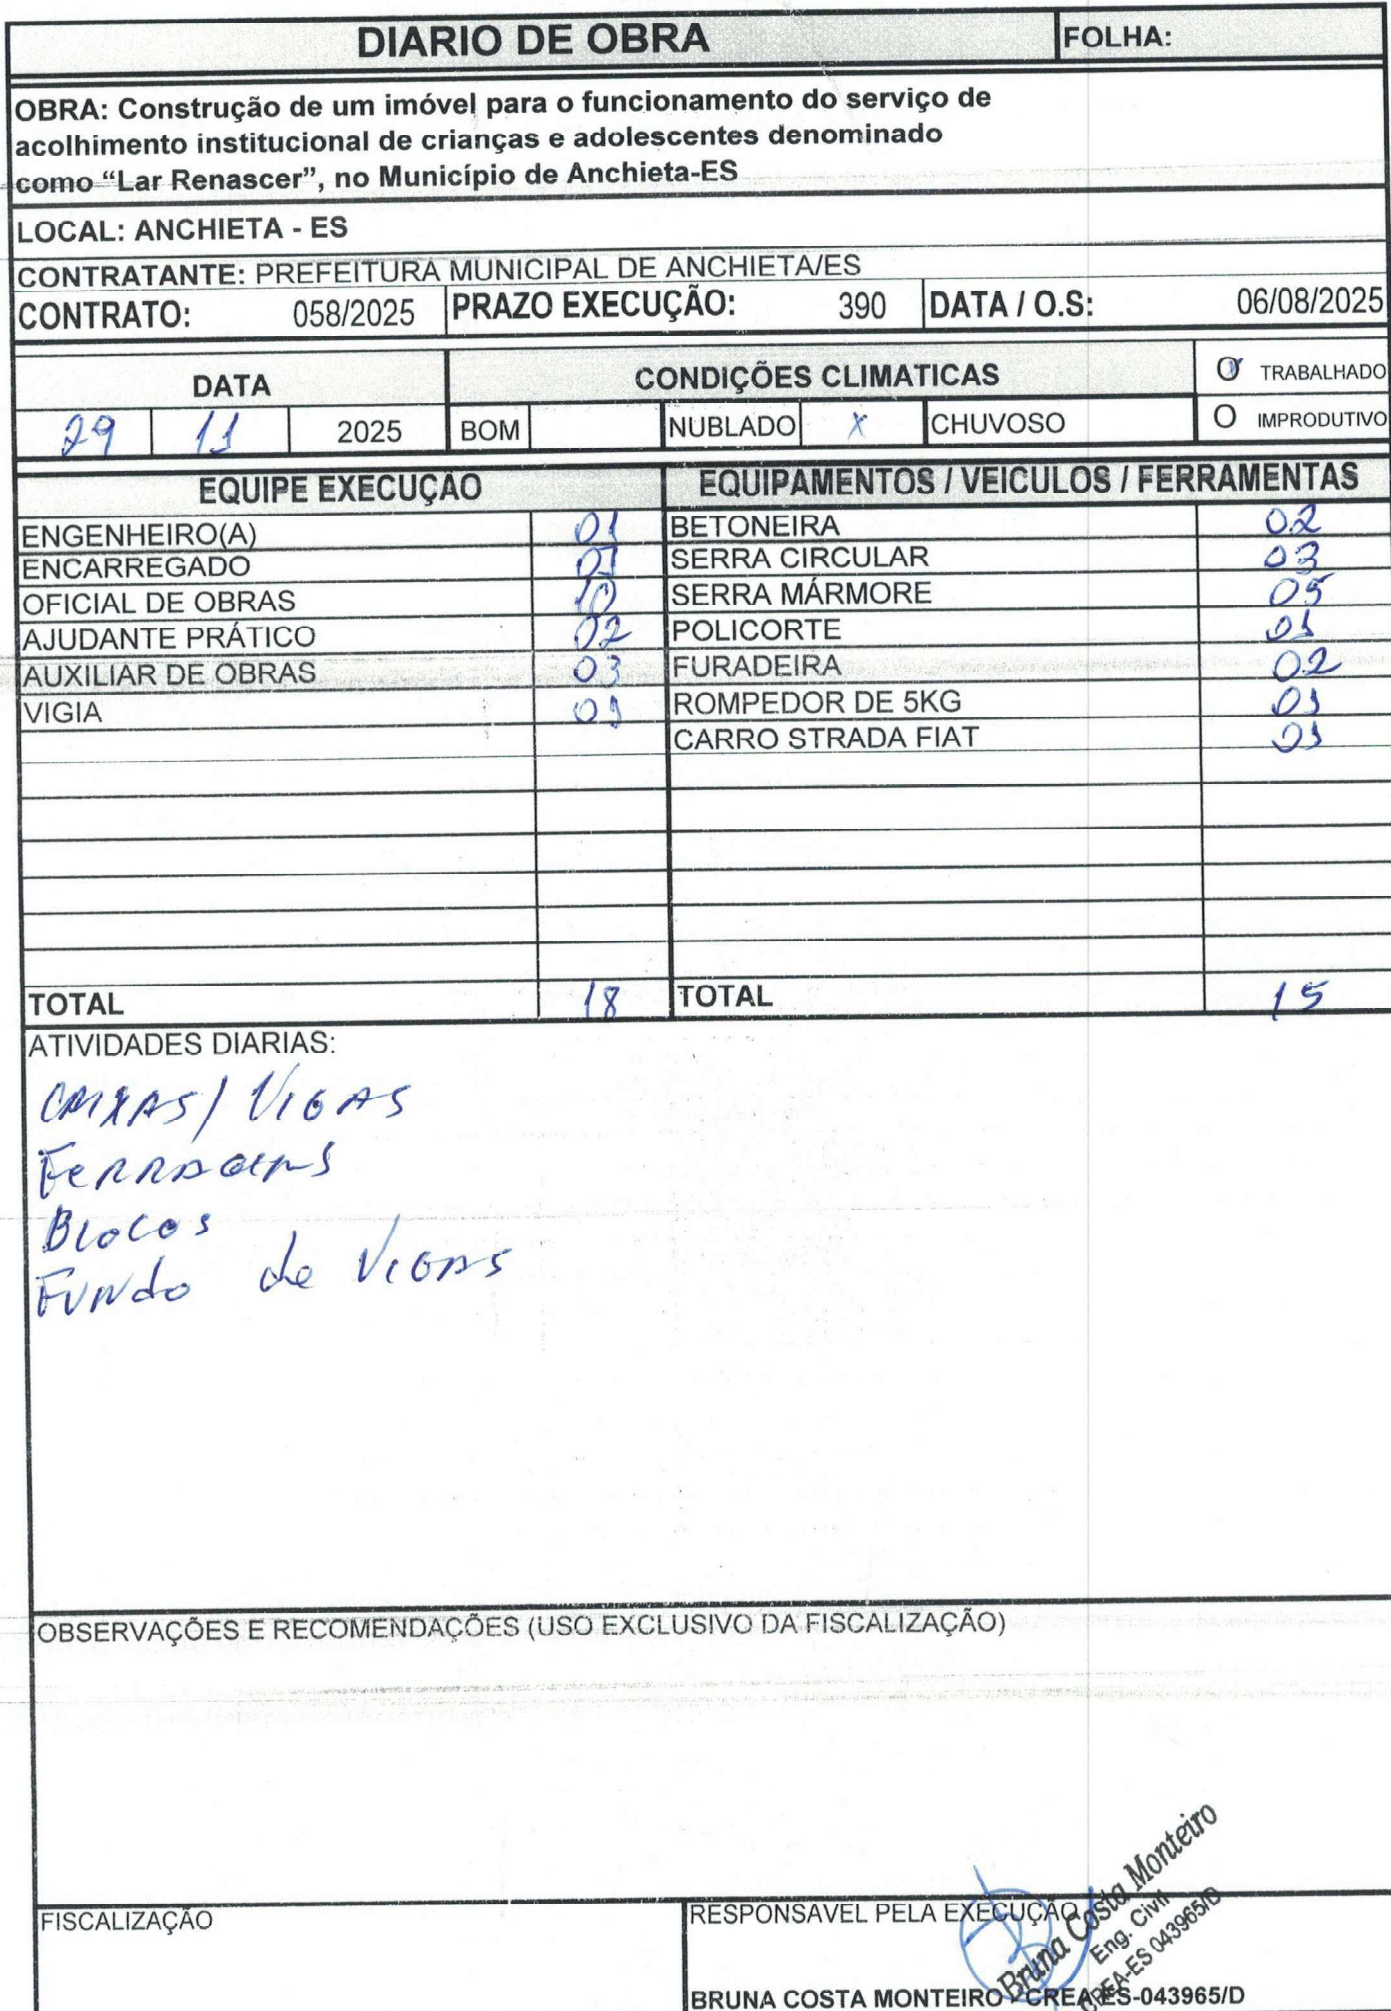 DIARIO DE OBRA FOLHA:
OBRA: Construção de um imóvel para o funcionamento do serviço de
acolhimento institucional de crianças e adolescentes denominado
como “Lar Renascer”, no Município de Anchieta-ES
LOCAL: ANCHIETA - ES
CONTRATANTE: PREFEITURA MUNICIPAL DE ANCHIETA/ES
CONTRATO: 058/2025 PRAZO EXECUÇÃO: 390 DATA / O.S: 06/08/2025
DATA CONDIÇÕES CLIMATICAS TRABALHADO
29 11 2025 BOM NUBLADO X CHUVOSO IMPRODUTIVO
EQUIPE EXECUÇÃO EQUIPAMENTOS / VEICULOS / FERRAMENTAS
ENGENHEIRO(A) 01 BETONEIRA 02
ENCARREGADO 01 SERRA CIRCULAR 03
OFICIAL DE OBRAS 10 SERRA MÁRMORE 05
AJUDANTE PRÁTICO 02 POLICORTE 01
AUXILIAR DE OBRAS 03 FURADEIRA 02
VIGIA 01 ROMPEDOR DE 5KG 01
CARRO STRADA FIAT 01
TOTAL 18 TOTAL 15
ATIVIDADES DIARIAS:
CAIXAS/ VIGAS
FERRAGENS
BLOCOS
FUNDO de VIGAS
OBSERVAÇÕES E RECOMENDAÇÕES (USO EXCLUSIVO DA FISCALIZAÇÃO)
FISCALIZAÇÃO RESPONSAVEL PELA EXECUÇÃO
Bruna Costa Monteiro
Eng. Civil
CREA-ES 043965/D
BRUNA COSTA MONTEIRO - CREA ES-043965/D